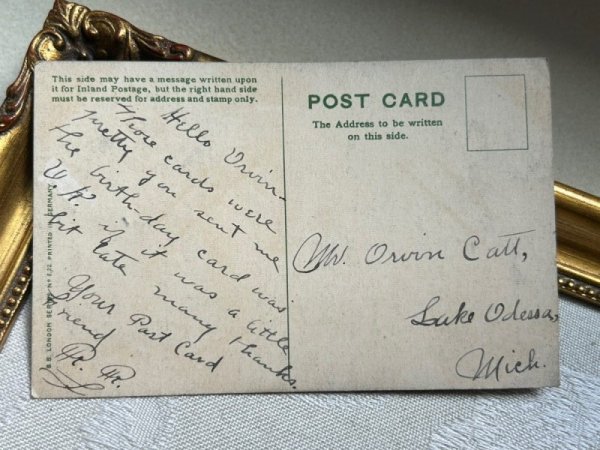 This side may have a message written upon
it for Inland Postage, but the right hand side
must be reserved for address and stamp only.
Hello Orvin-
Those cards were
pretty you sent me
The birth-day card was
if it was a little
bit late many thanks.
Your Post Card
Friend
B.B. LONDON SERIES PRINTED IN GERMANY
POST CARD
The Address to be written
on this side.
Mr. Orvin Catt,
Lake Odessa,
Mich.